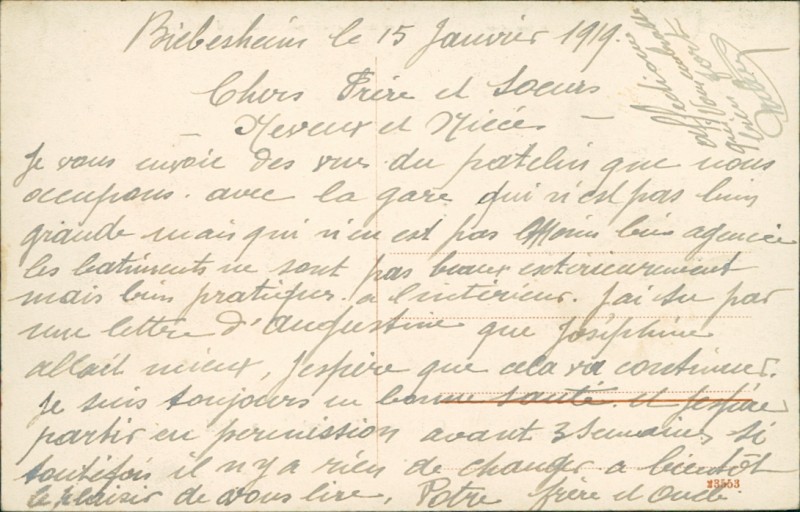 Biebesheim le 15 Janvier 1919.
Chers Frère et Soeurs
Neveux et Nièces –
Je vous envoie des vues du patelin que nous
occupons. avec la gare qui n'est pas bien
grande mais qui n'en est pas Moins bien agencée
les batiments ne sont pas beaux exterieurement
mais bien pratique. a l'intérieur. J'ai su par
une lettre d'Augustine que Joséphine
allait mieux, J'espère que cela va continuer.
Je suis toujours en bonne santé. et J'espère
partir en permission avant 3 Semaines, si
toutefois il n'y a rien de changer a bientôt
le plaisir de vous lire. Votre frère et Oncle.
affectionné
qui
bien
23553